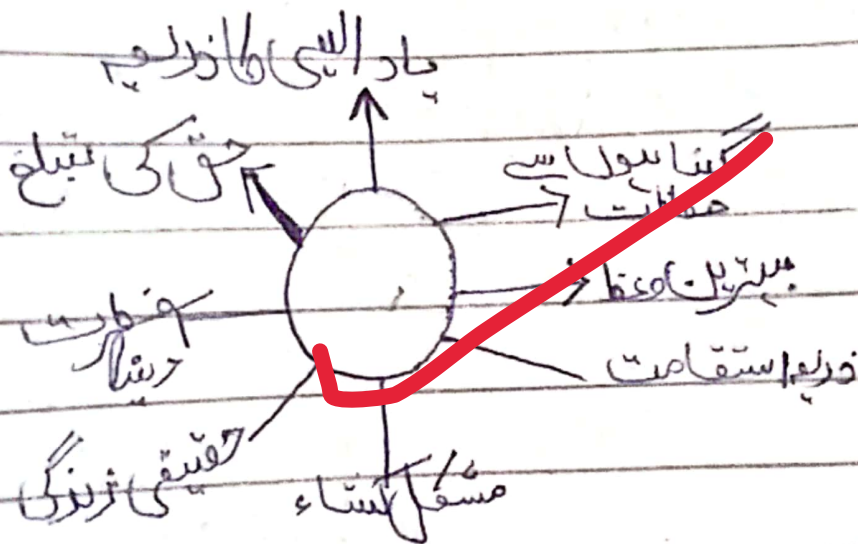 یاد الہی کا ذریعہ
گناہوں سے
حفاظت
بہترین وعظ
ذریعہ استقامت
مشکل کشاء
حقیقی زندگی
حق کی تبلغ